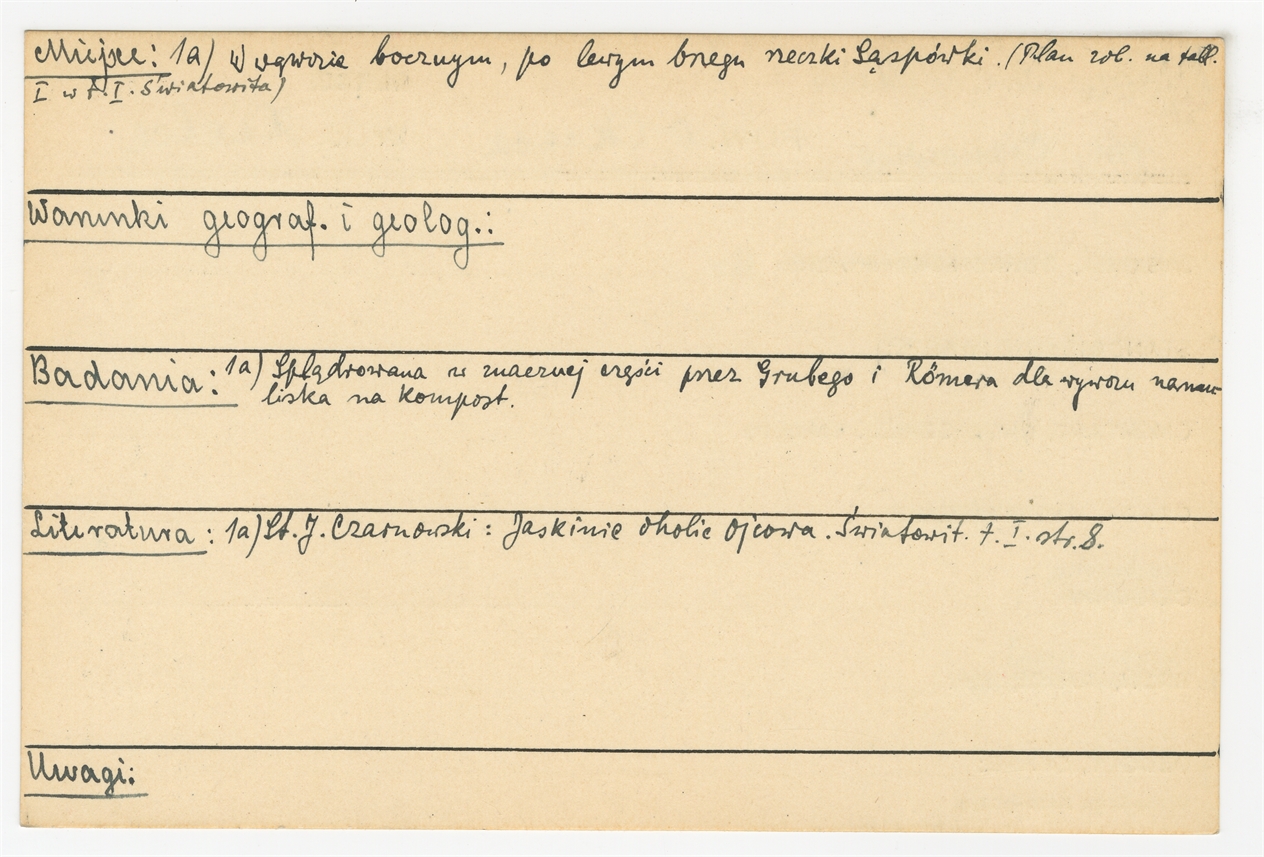 Miejsce: 1a) W wąwozie bocznym, po lewym brzegu rzeczki Sąspówki. (Plan zob. na tabl.
I w t. I. Światowita)
Warunki geograf. i geolog.:
Badania: 1a) Splądrowana w znacznej części przez Grubego i Römera dla wywozu namu-
liska na kompost.
Literatura: 1a) St. J. Czarnowski: Jaskinie okolic Ojcowa. Światowit. t. I. str. 8.
Uwagi: